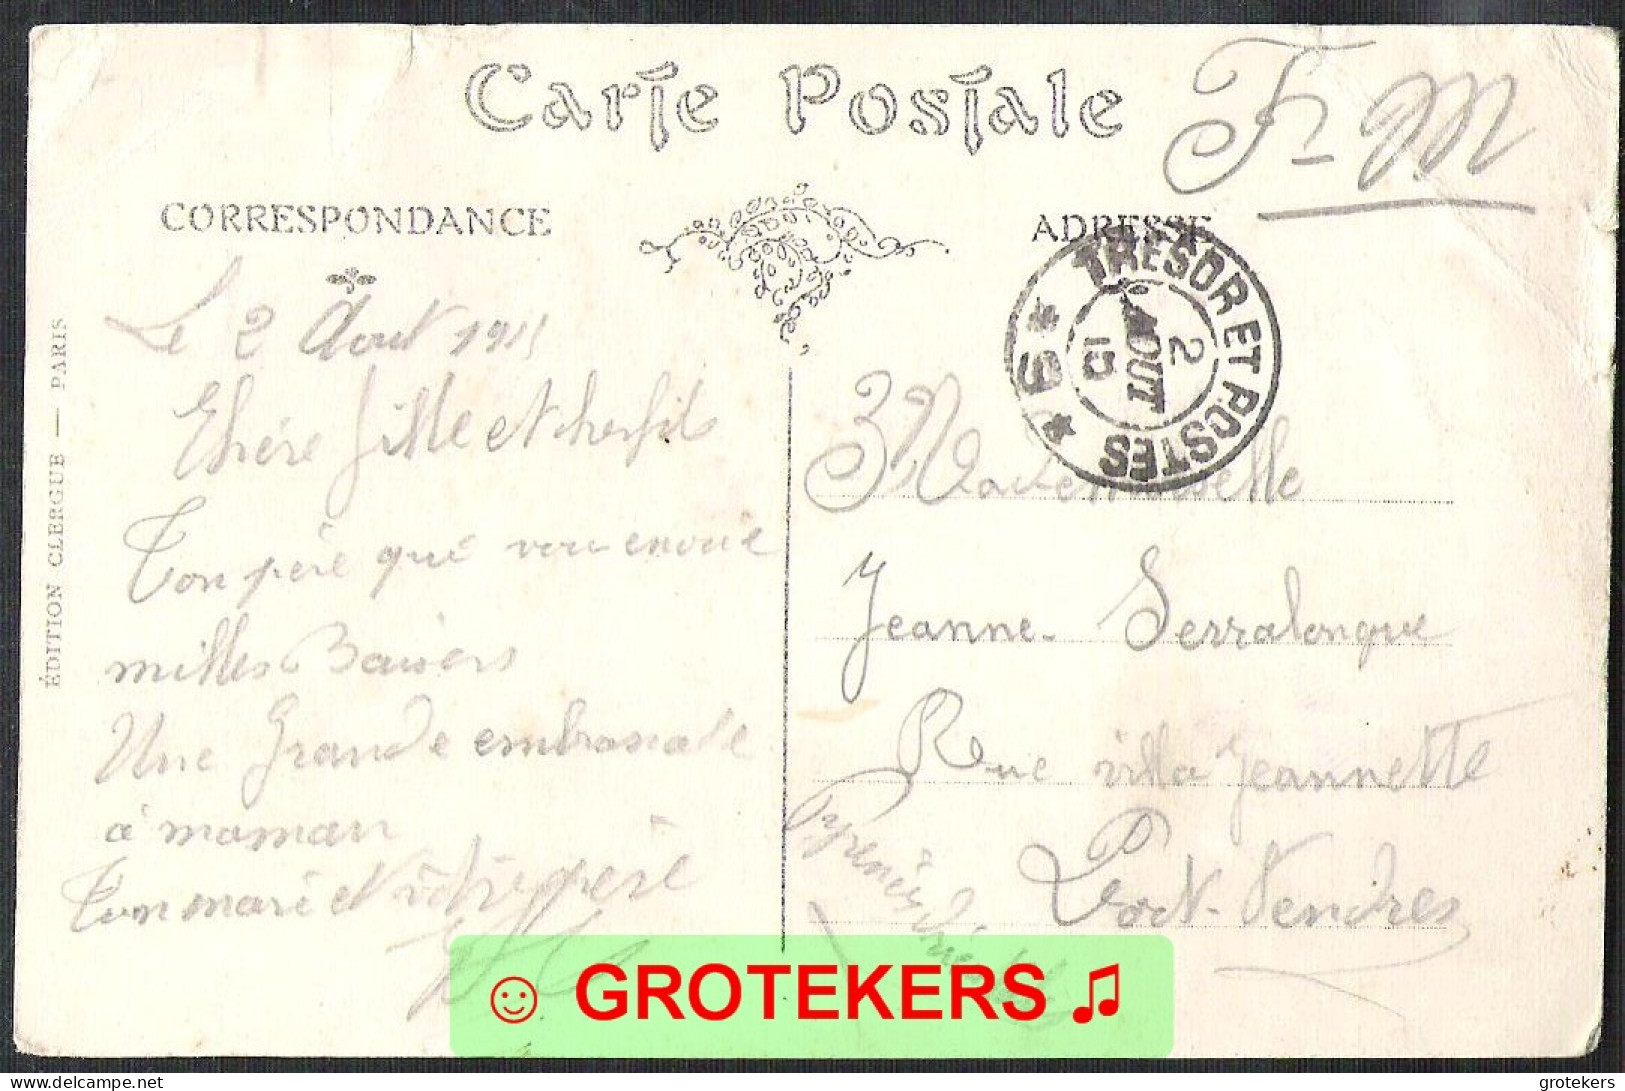 Carte Postale
F-M
CORRESPONDANCE
ADRESSE
TRÉSOR ET POSTES
* 9 *
2
AOUT
15
Le 2 Aout 1915
Chère fille et cher fils
Ton père qui vou envoie
milles Baisers
Une Grande embrassade
à maman
Ton mari et votre père
Mademoiselle
Jeanne Serralongue
Rue villa Jeannette
Port-Vendres
Pyrenées Orientales
ÉDITION CLERGUE — PARIS
☺ GROTEKERS ♫
www.delcampe.net
grotekers